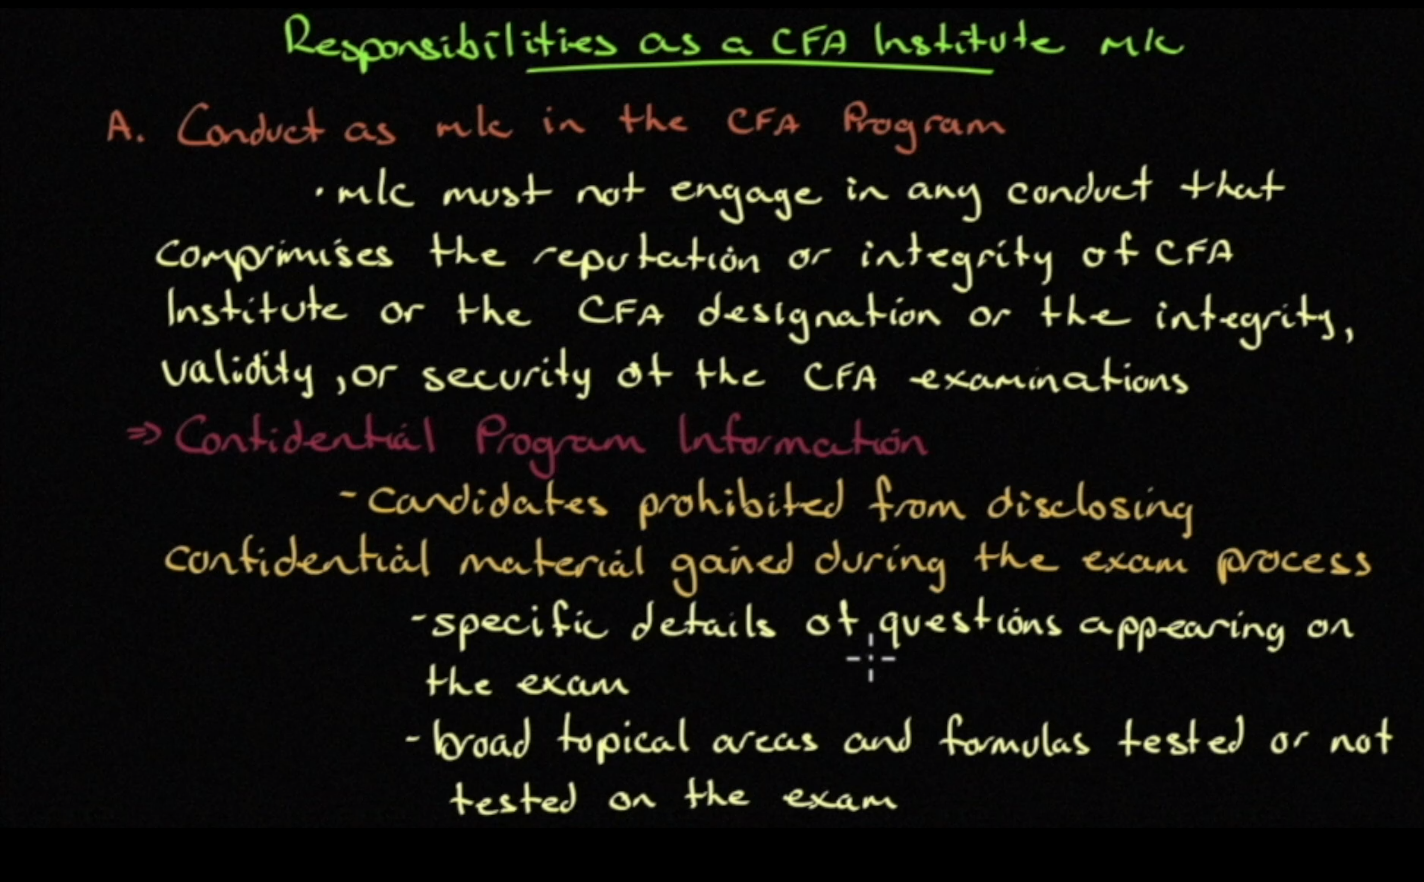 Responsibilities as a CFA Institute m/c
A. Conduct as m/c in the CFA Program
• m/c must not engage in any conduct that
comprimises the reputation or integrity of CFA
Institute or the CFA designation or the integrity,
validity, or security of the CFA examinations
⇒ Confidential Program Information
- candidates prohibited from disclosing
confidential material gained during the exam process
- specific details of questions appearing on
the exam
- broad topical areas and formulas tested or not
tested on the exam